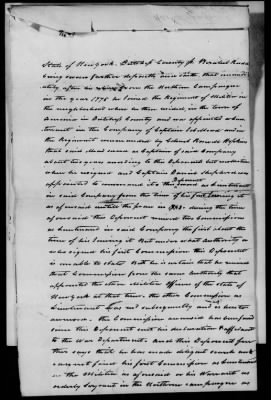 State of New York. Dutchess County ss Bezaleel Rudd
being sworn further deposeth and saith, that immedi-
ately after in from the Northern Campaign
in the year 1775 he joined the Regiment of Militia in
the neighborhood where he then resided, in the town of
Amenia in Dutchess County and was appointed when
Serjeant in the Company of Captain and in
the Regiment commanded by Colonel Roswell Hopkins
that said was as Captain of said Company
about two years according to this Deponent's best recollection
when he resigned and Captain Daniel Shepherd was
appointed to command it & this Deponent was as Lieutenant
in said Company from the time of his first
as aforesaid until the peace in 1783 during the term
aforesaid this Deponent served two Commissions
as Lieutenant in said Company the first about the
time of his joining it But under what authority or
who signed his first Commission this Deponent
is unable to state But he is certain that he received
that Commission from the same authority that
appointed the other Militia Officers of the State of
New York at that time, the other Commission as
Lieutenant was subsequently and
the Commission aforesaid was
since this Deponent sent his declaration & affidavit
to the War Department. And this Deponent fur-
ther says that he has made diligent search and
cannot find his first Commission as Lieutenant
in the Militia as aforesaid or his Warrant as
orderly Serjeant in the Northern campaign as